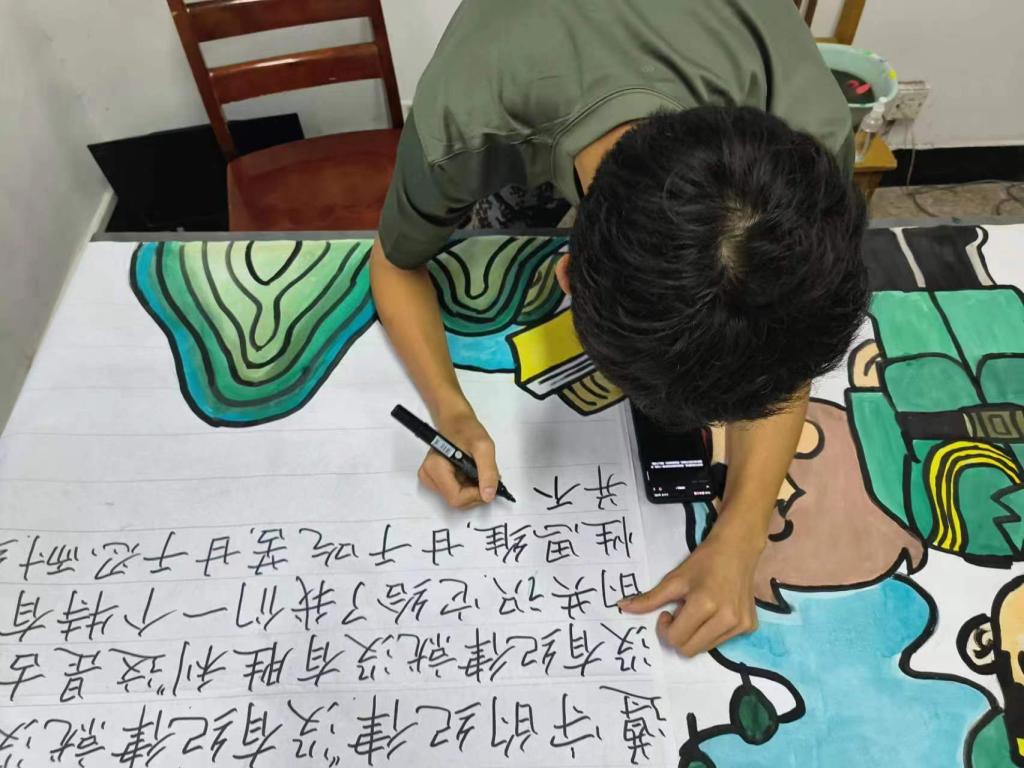 遵守的纪律“没有纪律就没
没有纪律就没有胜利”这是古
的共识.它给了我们一个特有
性思维,甘于吃苦,甘于忍耐
并不